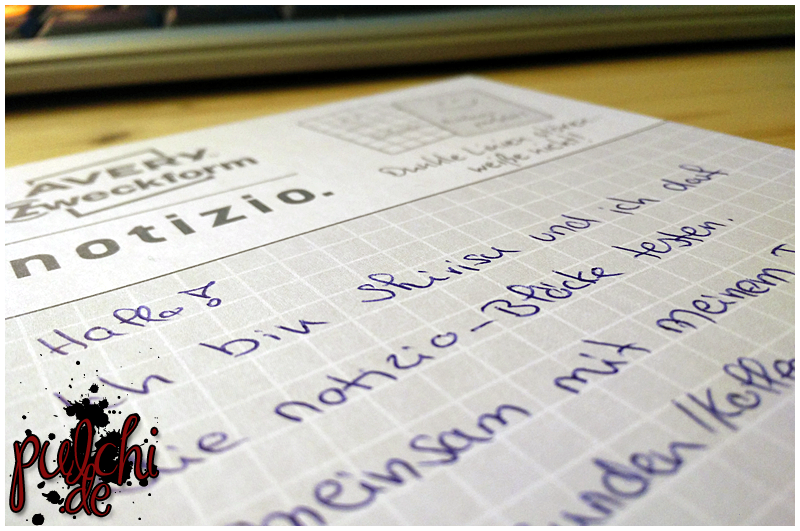 AVERY
Zweckform
notizio.
Dunkle Linien stören
weiße nicht!
Hallo!
Ich bin Shirisu und ich darf
die notizio-Blöcke testen.
meinsam mit meinem
unden/Kolle
pulchi
.de